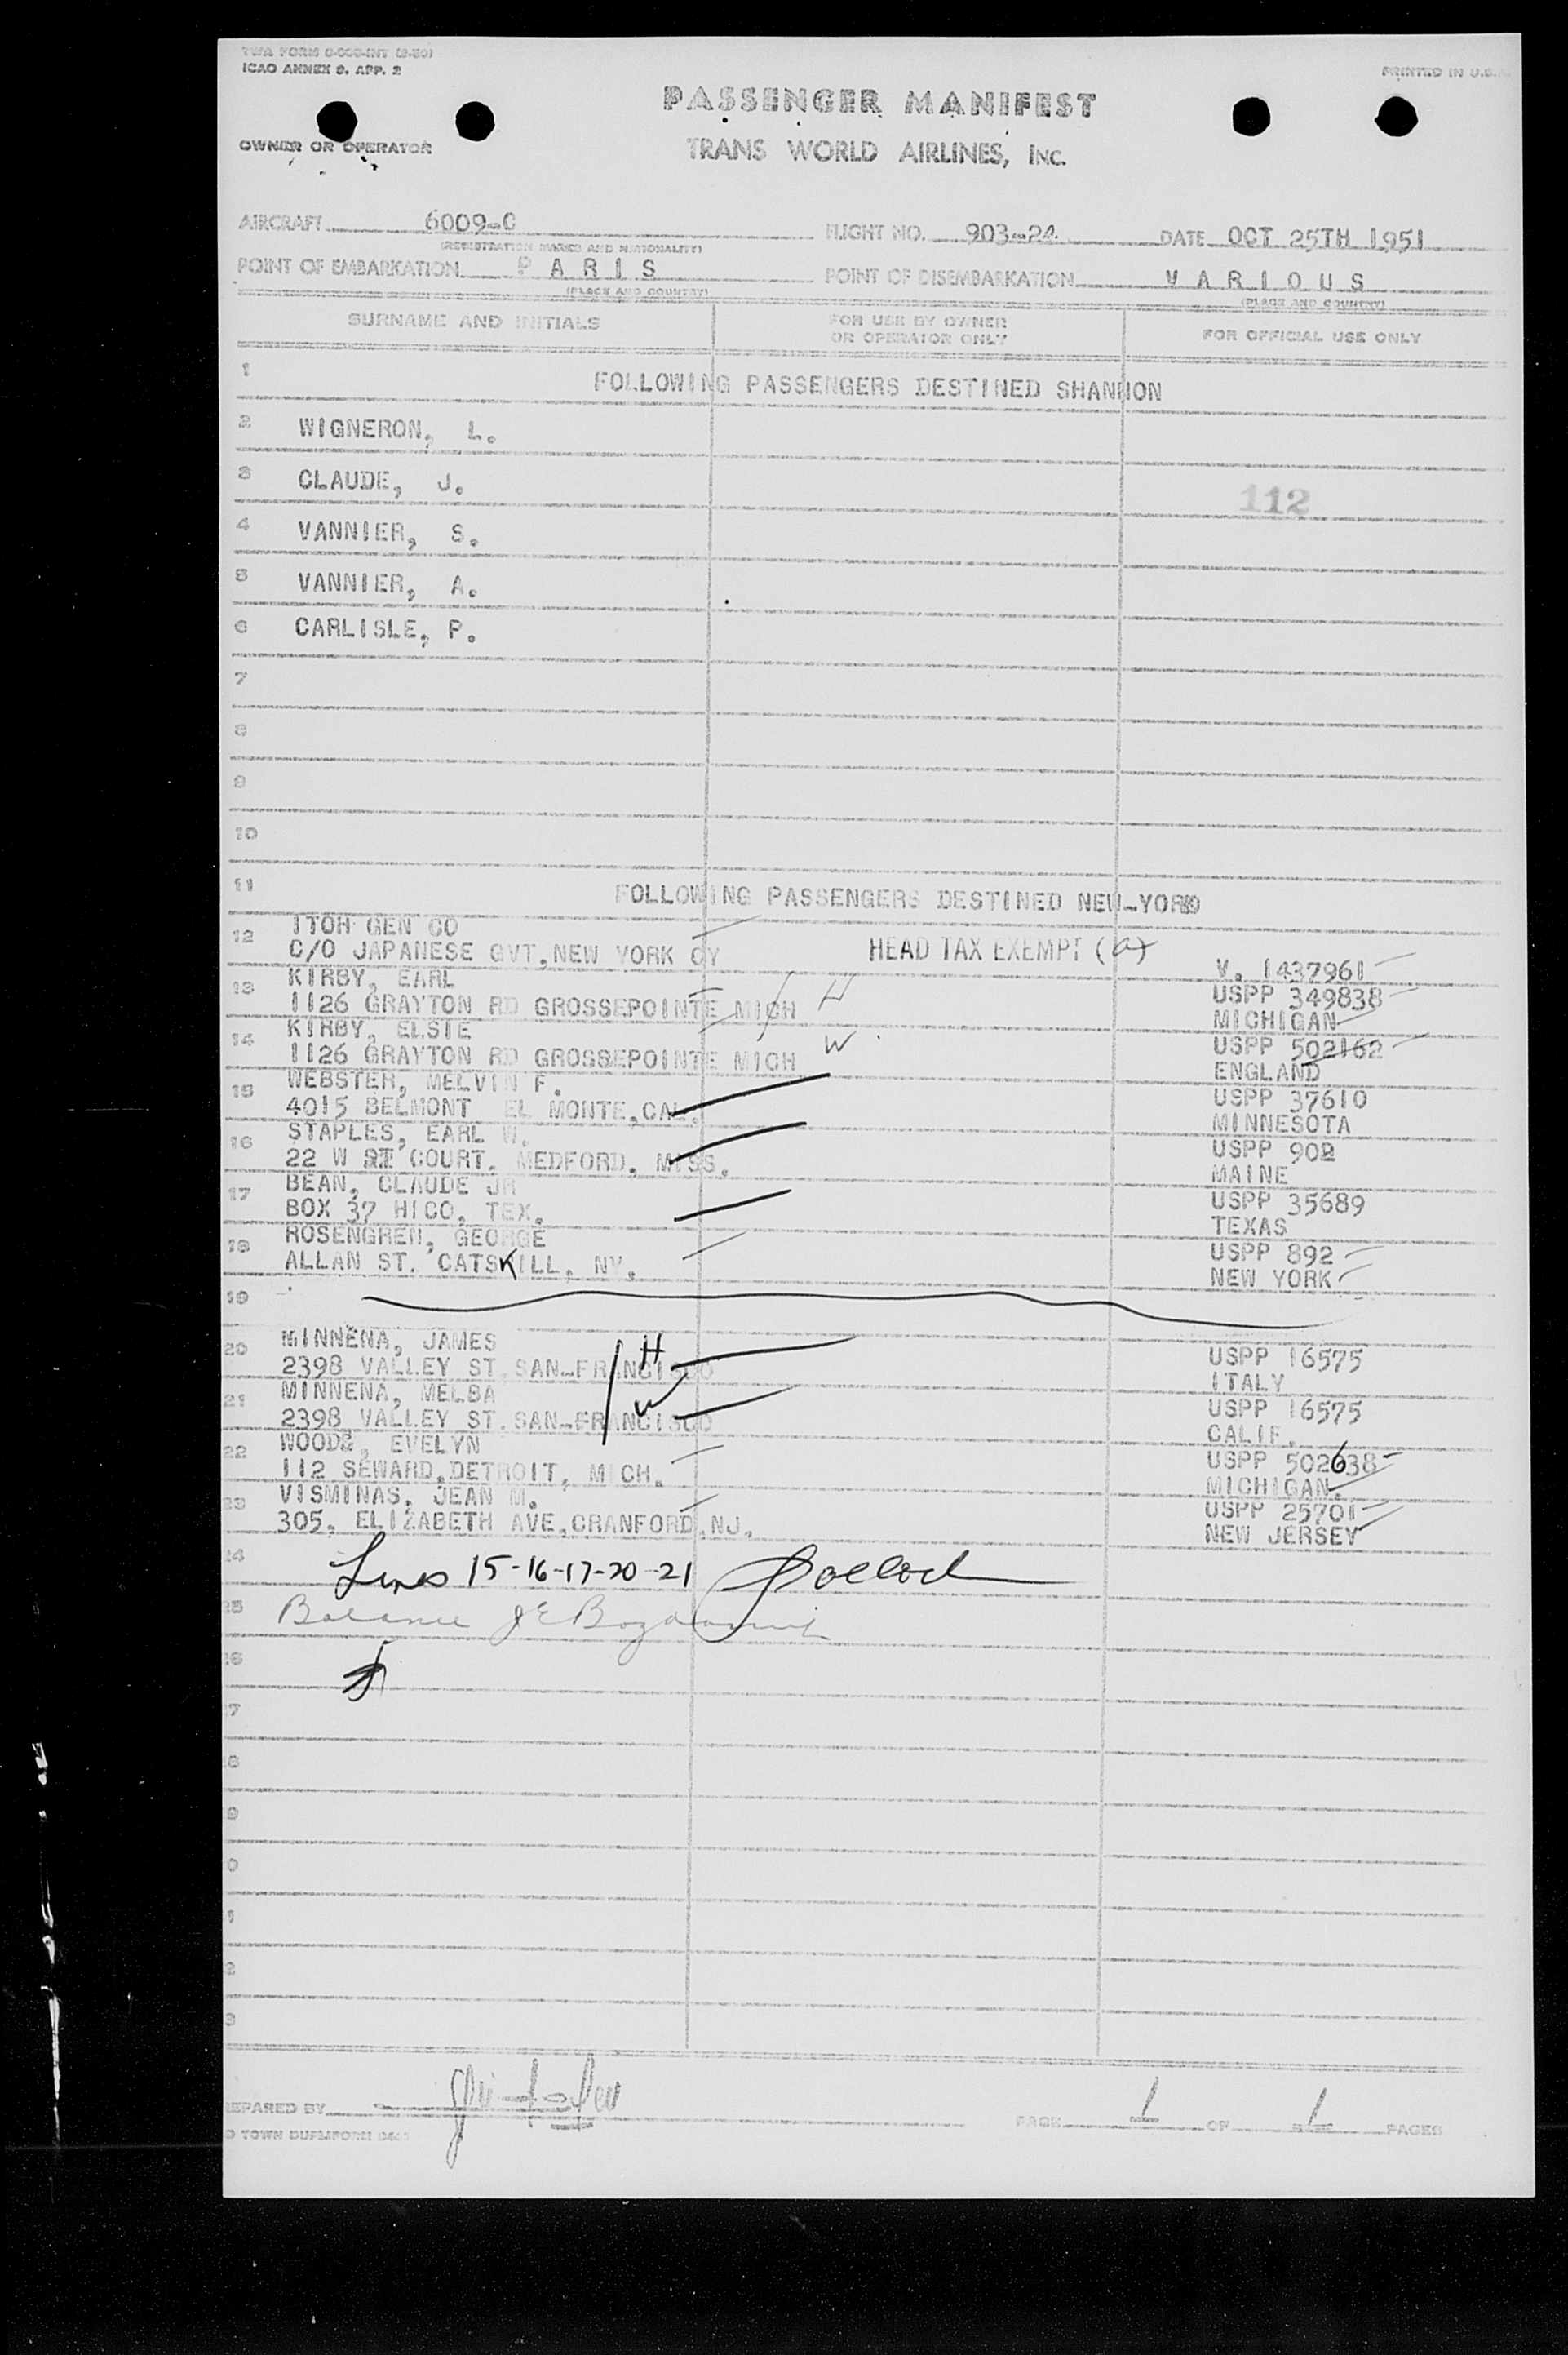 TWA FORM
ICAO ANNEX 9, APP. 2
PRINTED IN U.S.A.
PASSENGER MANIFEST
OWNER OR OPERATOR
TRANS WORLD AIRLINES, INC.
AIRCRAFT 6009-C
FLIGHT NO. 903-24
DATE OCT 25TH 1951
(REGISTRATION MARKS AND NATIONALITY)
POINT OF EMBARKATION PARIS
POINT OF DISEMBARKATION VARIOUS
(PLACE AND COUNTRY)
(PLACE AND COUNTRY)
SURNAME AND INITIALS
FOR USE BY OWNER OR OPERATOR ONLY
FOR OFFICIAL USE ONLY
1 FOLLOWING PASSENGERS DESTINED SHANNON
2 WIGNERON, L.
3 CLAUDE, J.
112
4 VANNIER, S.
5 VANNIER, A.
6 CARLISLE, P.
7
8
9
10
11 FOLLOWING PASSENGERS DESTINED NEW-YORK
12 ITOH GEN CO
C/O JAPANESE GVT, NEW YORK CY HEAD TAX EXEMPT (a) V. 1437961
13 KIRBY, EARL USPP 349838
1126 GRAYTON RD GROSSEPOINTE MICH H MICHIGAN
14 KIRBY, ELSIE USPP 502162
1126 GRAYTON RD GROSSEPOINTE MICH W ENGLAND
15 WEBSTER, MELVIN F. USPP 37610
4015 BELMONT EL MONTE, CAL. MINNESOTA
16 STAPLES, EARL W. USPP 902
22 W COURT. MEDFORD, MASS. MAINE
17 BEAN, CLAUDE JR USPP 35689
BOX 37 HICO, TEX. TEXAS
18 ROSENGREN, GEORGE USPP 892
ALLAN ST. CATSKILL, NY. NEW YORK
19
20 MINNENA, JAMES USPP 16575
2398 VALLEY ST. SAN-FRANCISCO H ITALY
21 MINNENA, MELBA USPP 16575
2398 VALLEY ST. SAN-FRANCISCO W CALIF.
22 WOODS, EVELYN USPP 502638
112 SEWARD, DETROIT, MICH. MICHIGAN.
23 VISMINAS, JEAN M. USPP 25701
305, ELIZABETH AVE, CRANFORD, NJ. NEW JERSEY
24 Lines 15-16-17-20-21
25 Balance
26
7
8
9
0
1
2
3
PREPARED BY
PAGE 1 OF 1 PAGES